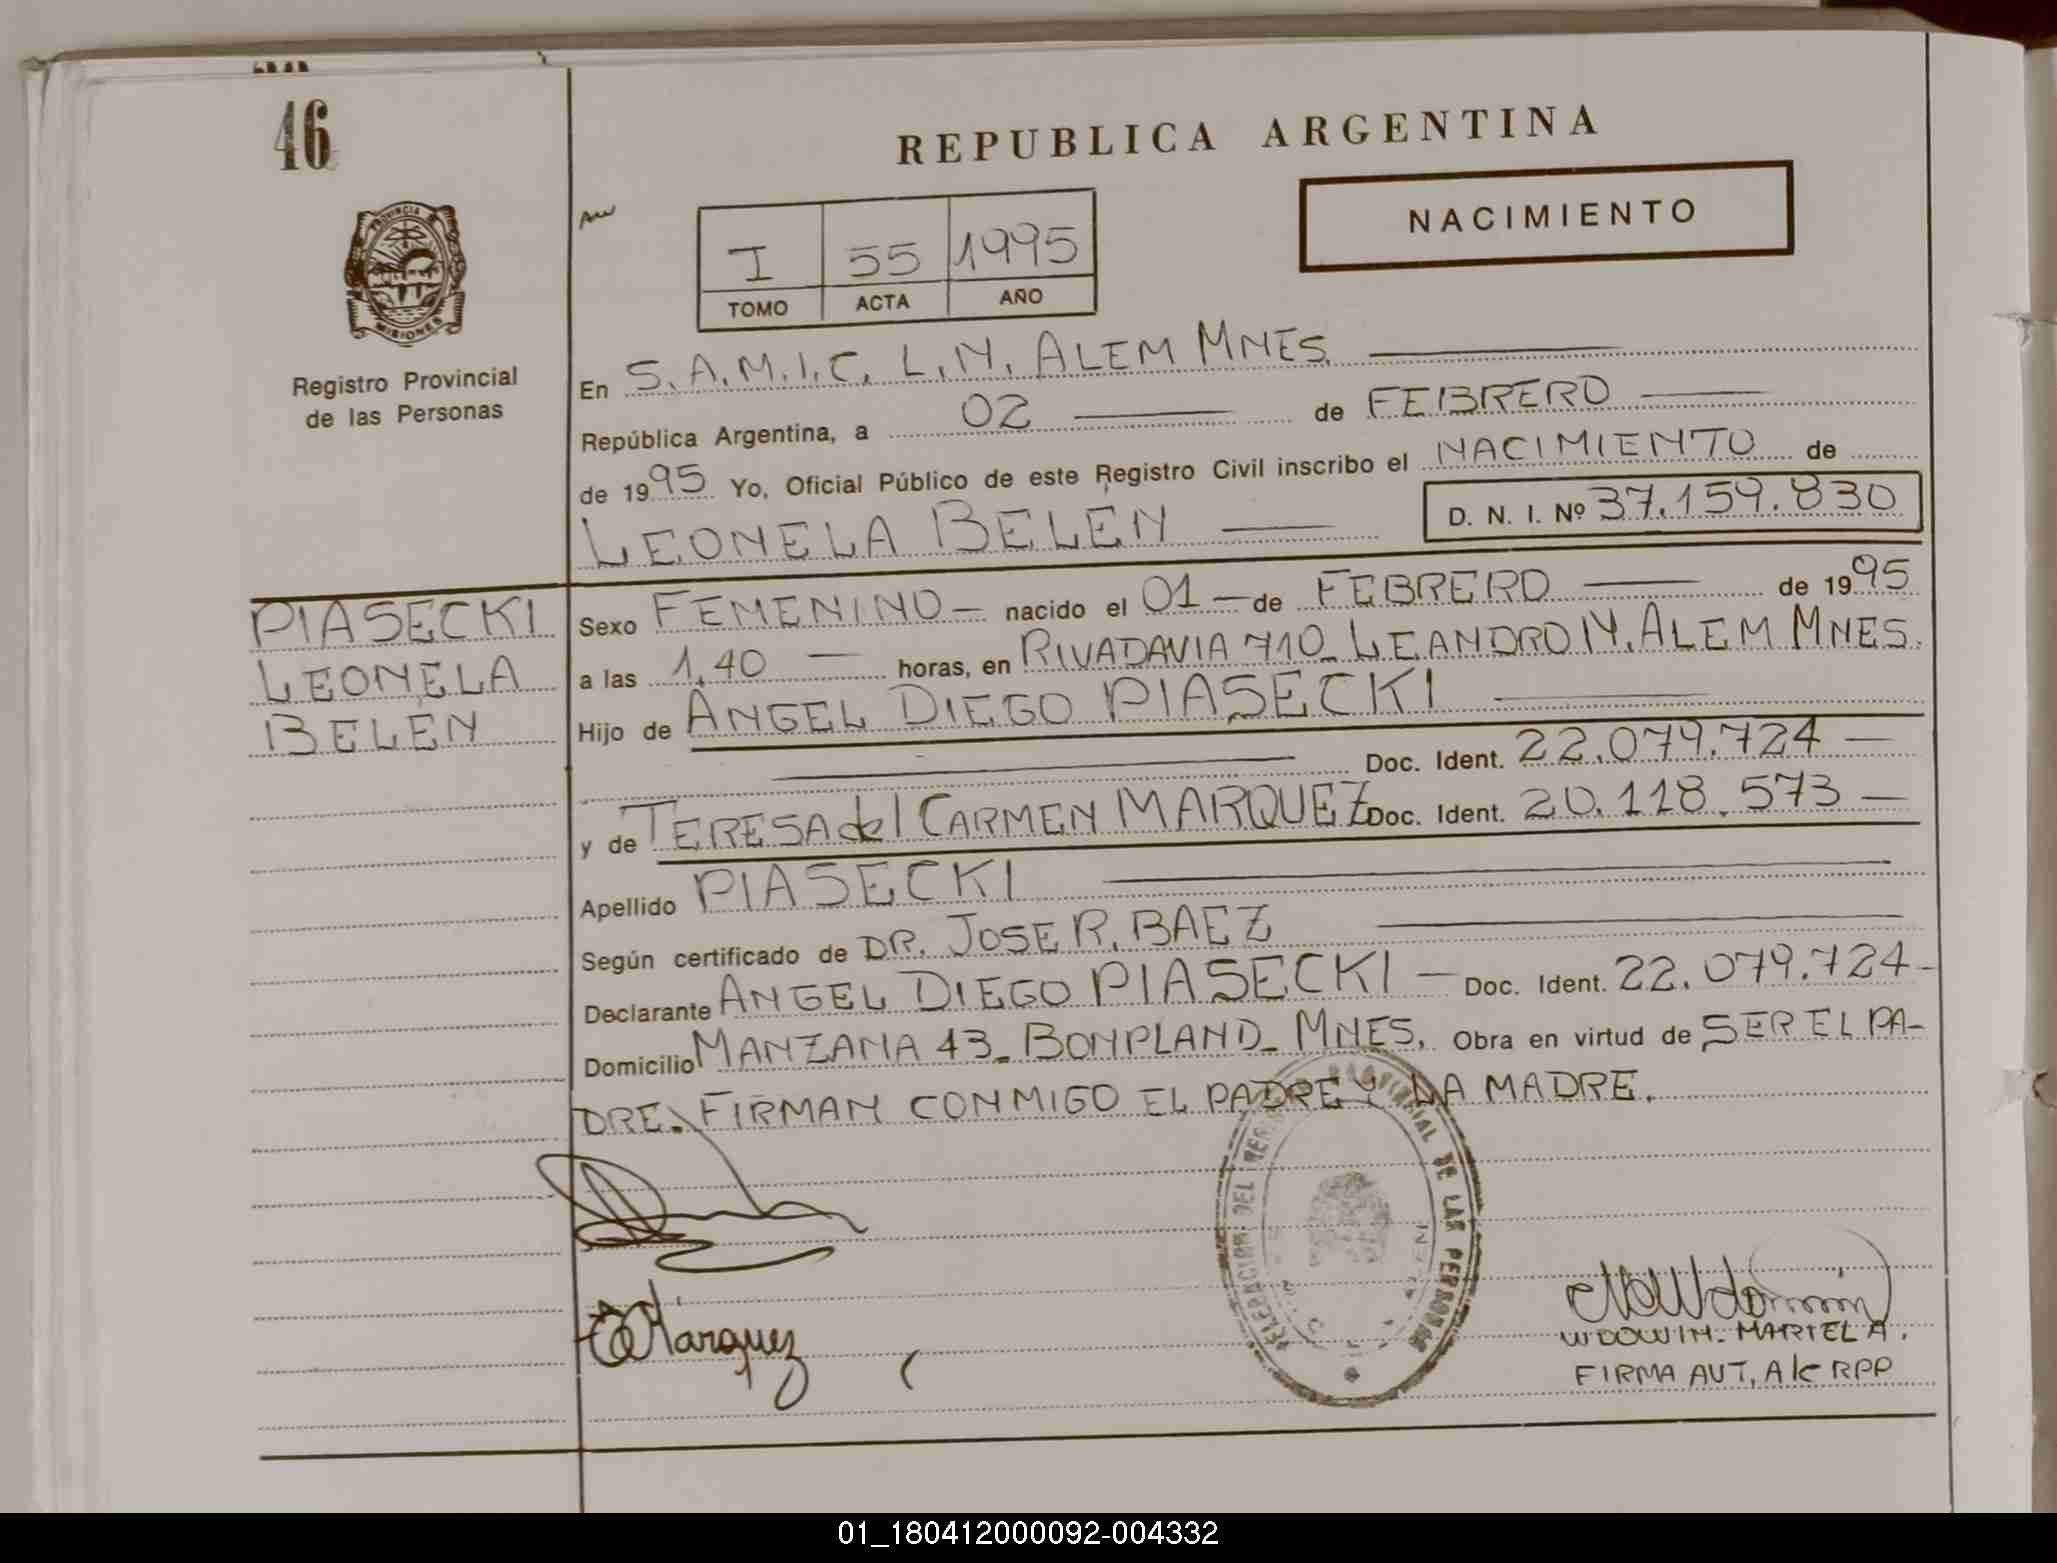 46
REPUBLICA ARGENTINA
NACIMIENTO
I 55 1995
TOMO ACTA AÑO
PROVINCIA
MISIONES
Registro Provincial
de las Personas
En S.A.M.I.C. L.N. ALEM MNES.
República Argentina, a 02 de FEBRERO
de 1995 Yo, Oficial Público de este Registro Civil inscribo el NACIMIENTO de
LEONELA BELEN D. N. I. Nº 37.159.830
PIASECKI
LEONELA
BELEN
Sexo FEMENINO nacido el 01 de FEBRERO de 1995
a las 1,40 horas, en RIVADAVIA 710_ LEANDRO N. ALEM MNES.
Hijo de ANGEL DIEGO PIASECKI
Doc. Ident. 22.079.724
y de TERESA del CARMEN MARQUEZ Doc. Ident. 20.118.573
Apellido PIASECKI
Según certificado de DR. JOSE R. BAEZ
Declarante ANGEL DIEGO PIASECKI Doc. Ident. 22.079.724
Domicilio MANZANA 43_ BONPLAND_ MNES. Obra en virtud de SER EL PA-
DRE. FIRMAN CONMIGO EL PADRE Y LA MADRE.
DELEGACION DEL REGISTRO PROVINCIAL DE LAS PERSONAS
Marquez
WDOWIN- MARIEL A.
FIRMA AUT. A/C RPP
01_180412000092-004332